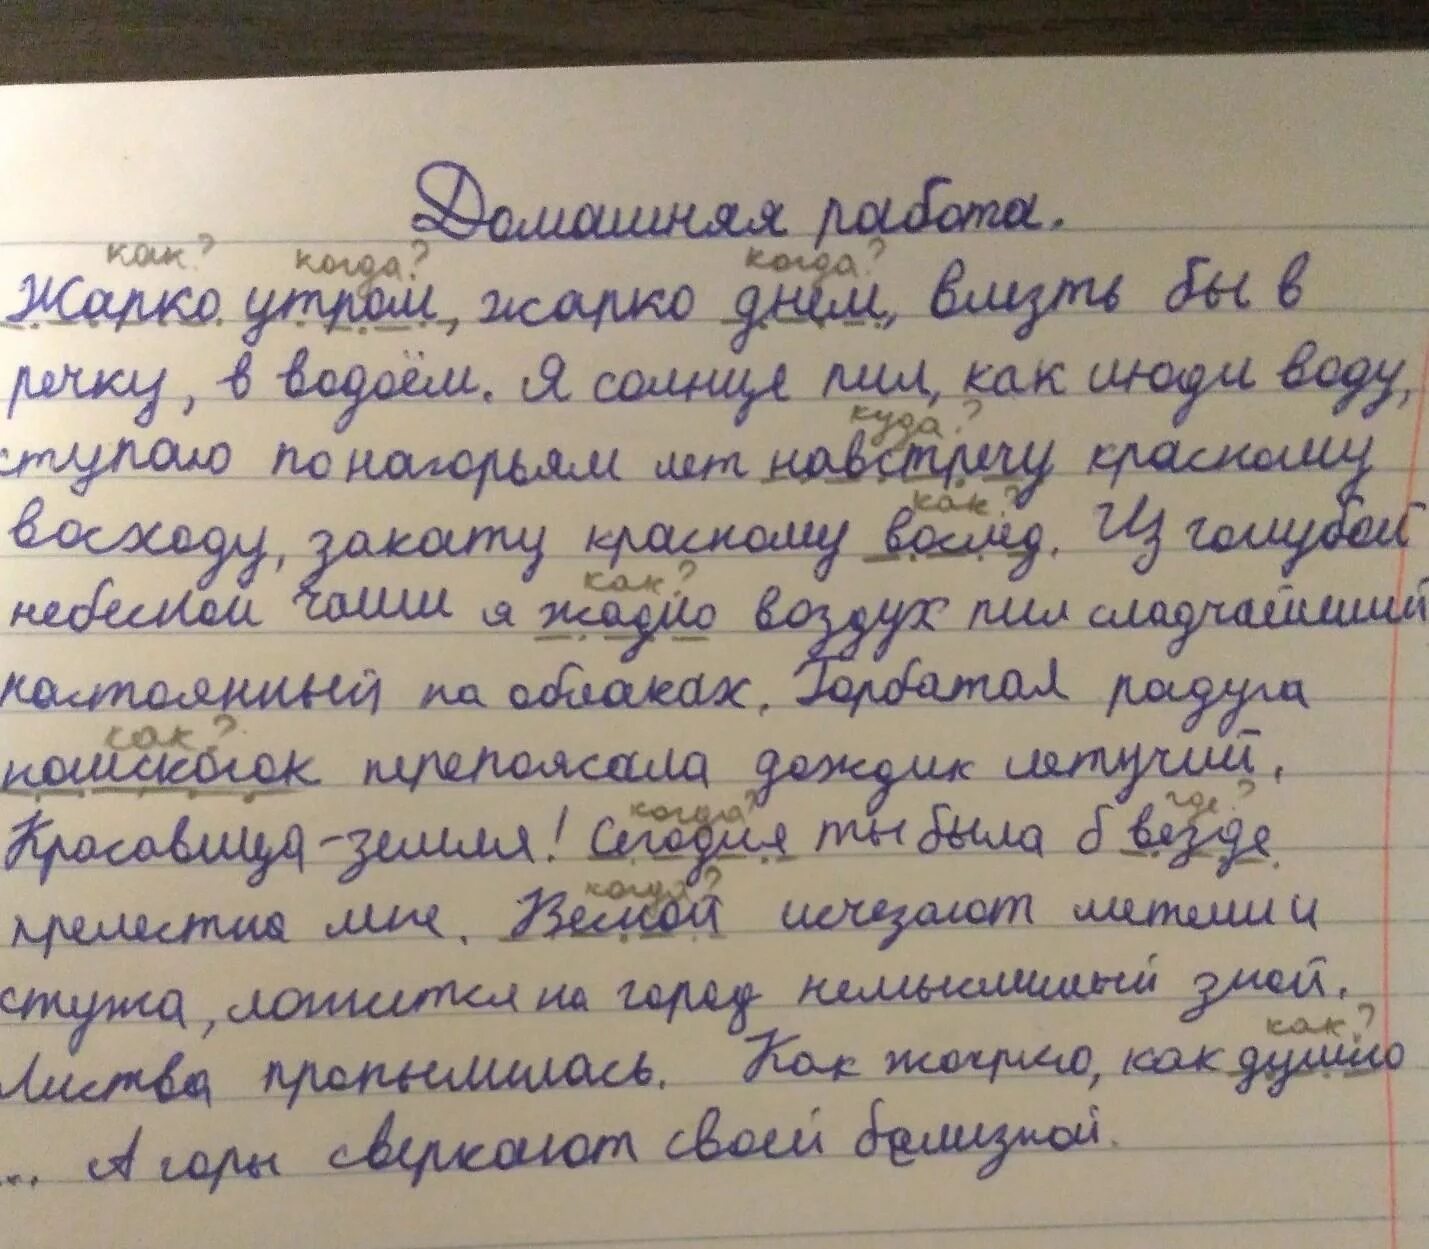 Домашняя работа.
как? когда? когда?
Жарко утром, жарко днём, влезть бы в
речку, в водоём. Я солнце пил, как люди воду,
куда?
ступаю по нагорьям лет навстречу красному
как?
восходу, закату красному вослед. Из голубой
как?
небесной чаши я жадно воздух пил сладчайший
настоянный на облаках. Горбатая радуга
как?
наискосок перепоясала дождик летучий.
когда? где?
Красавица-земля! Сегодня ты была б везде
когда?
прелестна мне. Весной исчезают метели и
стужа, ложится на город немыслимый зной.
как?
Листва пропылилась. Как жарко, как душно
... А горы сверкают своей белизной.